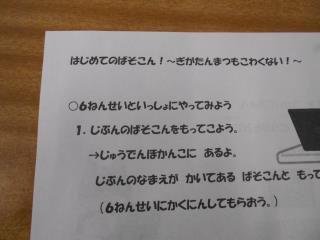 はじめてのぱそこん！～ぎがたんまつもこわくない！～
○6ねんせいといっしょにやってみよう
1. じぶんのぱそこんをもってこよう。
→じゅうでんほかんこに あるよ。
じぶんのなまえが かいてある ぱそこんと もっ
（6ねんせいにかくにんしてもらおう。）